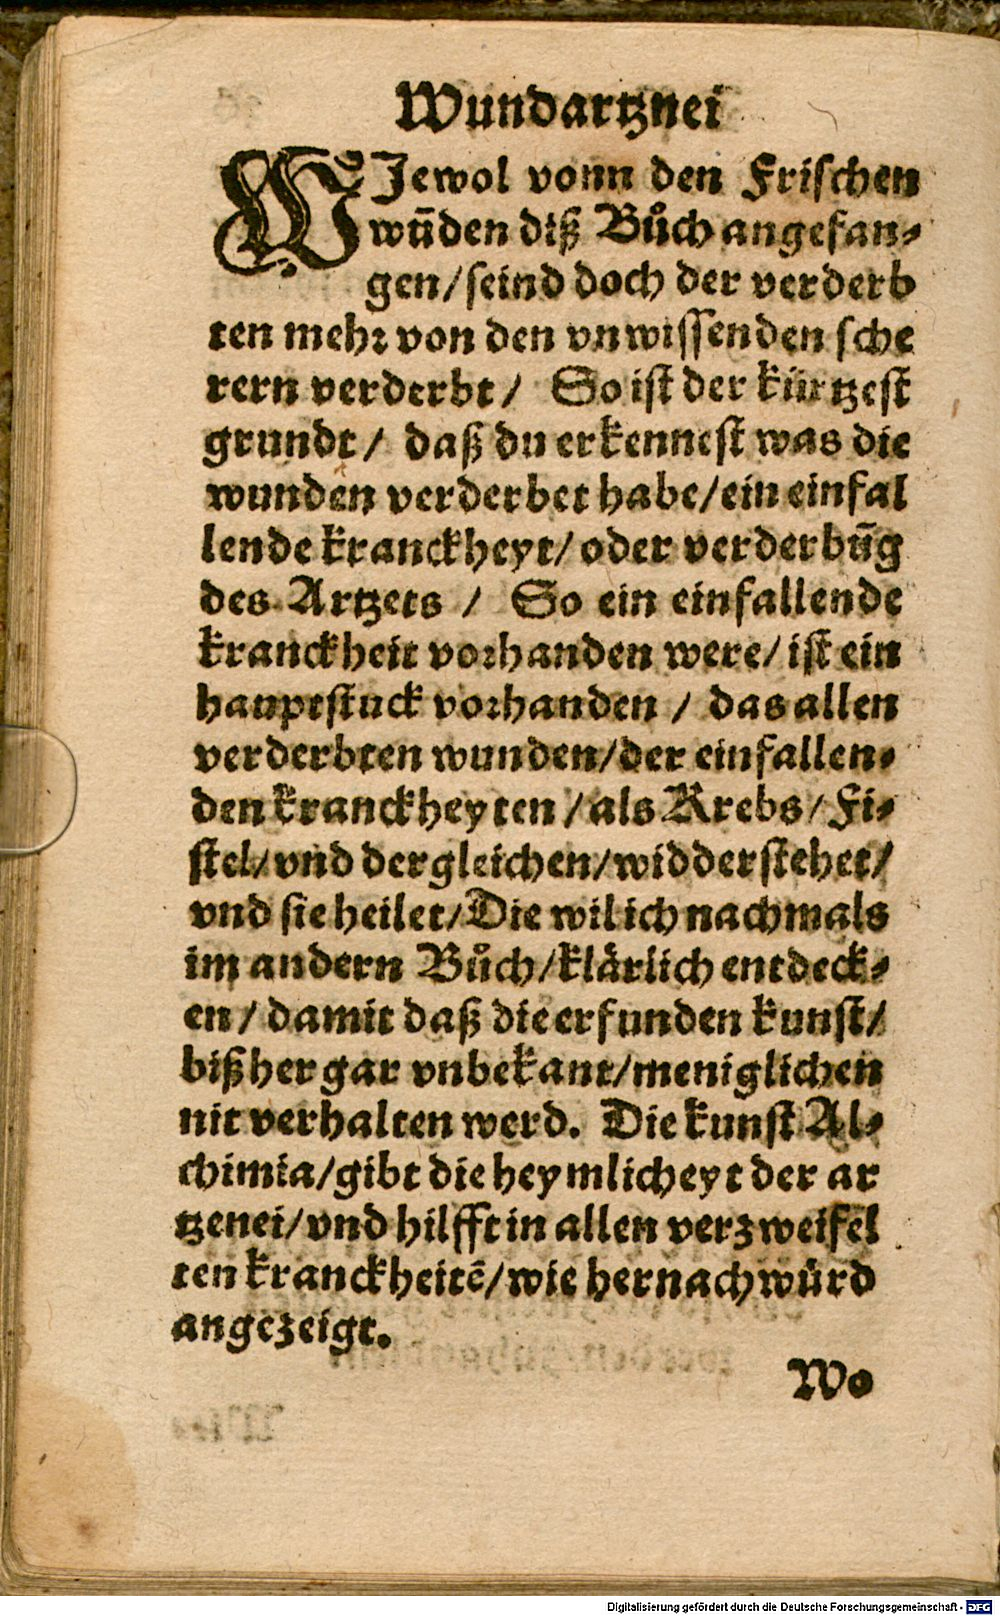 Wundartznei
WJewol vonn den Frischen
wūden diß Bůch angefan⸗
gen/seind doch der verderb
ten mehr von den vnwissenden sche
rern verderbt / So ist der kürtzest
grundt / daß du erkennest was die
wunden verderbet habe/ein einfal
lende kranckheyt/ oder verderbūg
des Artzets / So ein einfallende
kranckheit vorhanden were/ ist ein
hauptstuck vorhanden / das allen
verderbten wunden/der einfallen⸗
den kranckheyten /als Krebs/ Fi⸗
stel/ vnd dergleichen/widderstehet/
vnd sie heilet/Die wil ich nachmals
im andern Bůch/klärlich entdeck⸗
en / damit daß die erfunden kunst/
bißher gar vnbekant/meniglichen
nit verhalten werd. Die kunst Al⸗
chimia/gibt die heymlicheyt der ar
tzenei/vnd hilfft in allen verzweifel
ten kranckheitē/wie hernach würd
angezeigt.
Wo
Digitalisierung gefördert durch die Deutsche Forschungsgemeinschaft - DFG